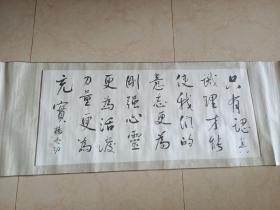 只有認真
識理才能
使我们的
意志更為
刚强心靈
更為活潑
力量更為
充實